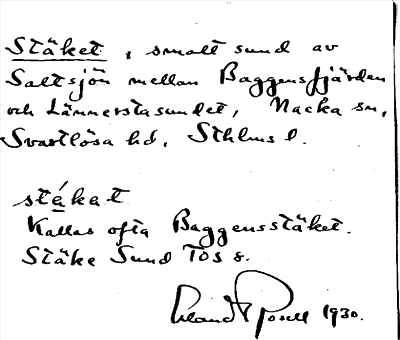 Stäket, smalt sund av
Saltsjön mellan Baggensfjärden
och Lännerstasundet, Nacka sn,
Svartlösa hd, Sthlms l.
stä́kat
Kallas ofta Baggensstäket.
Stäke Sund Tos 8.
Erland Rosell 1930.